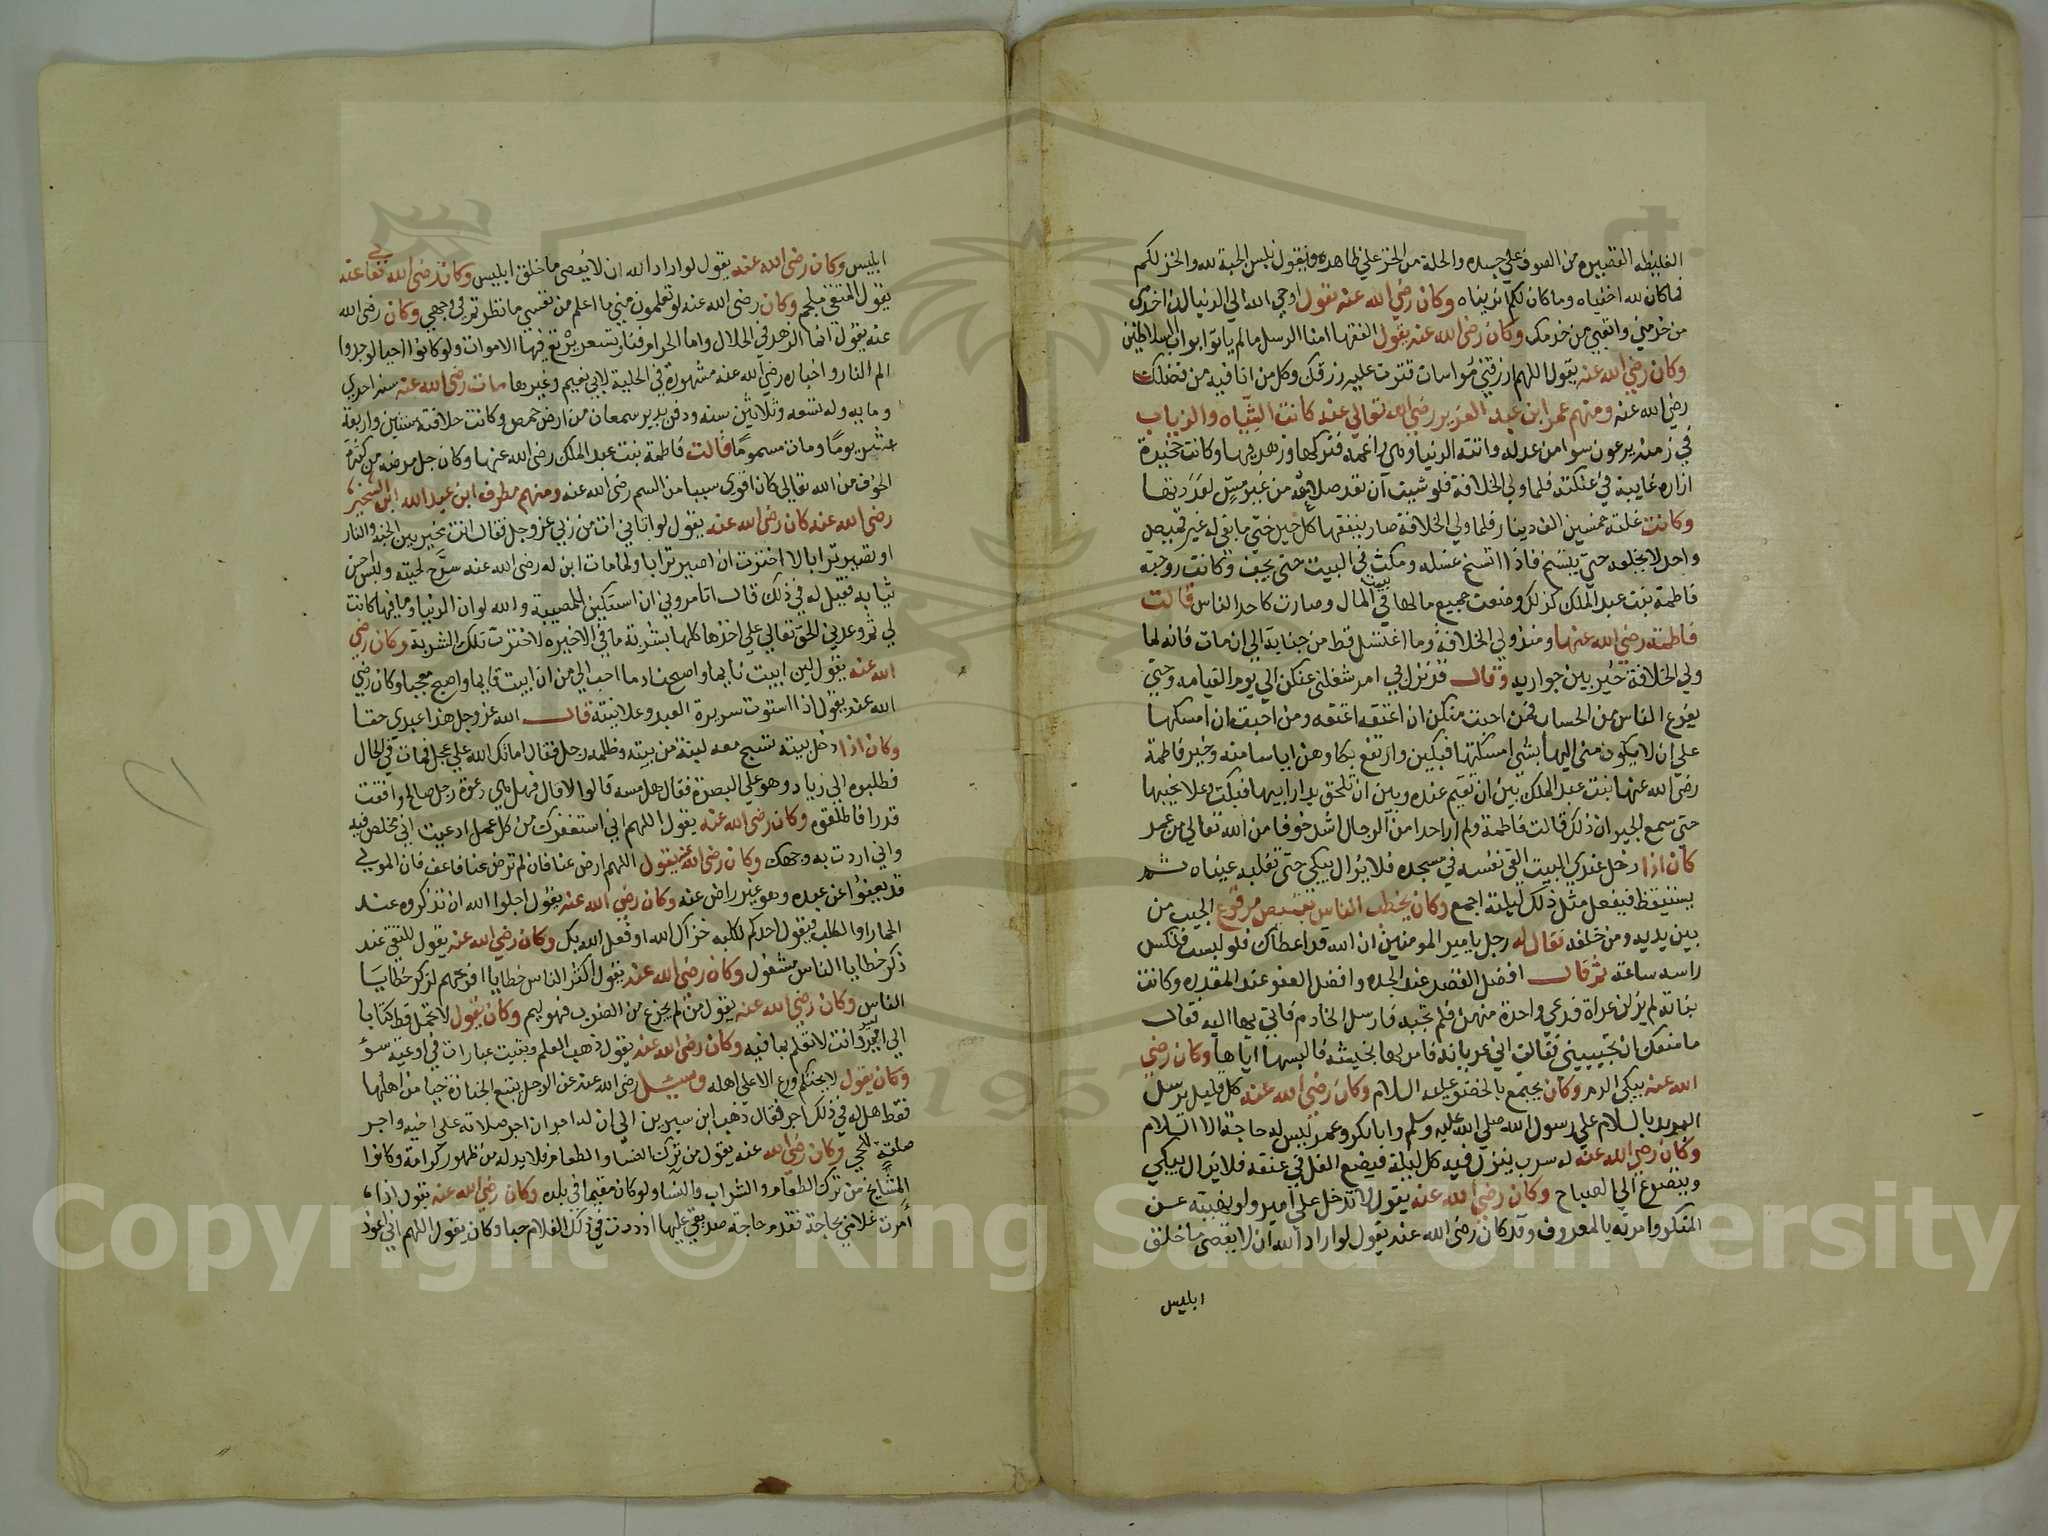 الغليظه القصيره من الصوف علي جسده والحلة من الخز علي ظاهره ويقول نلبس الجبة لله والخز لكم
فما كان لله اخفيناه وما كان لكم ابديناه وكان رضي الله عنه يقول اوحي الله الي الدنيا ان اخدمي
من خدمني واتعبي من خدمك وكان رضي الله عنه يقول الفقها امنا الرسل ما لم ياتوا ابواب السلاطين
وكان رضي الله عنه يقول اللهم ارزقني مواسات من قترت عليه رزقك وكل من انا فيه من فضلك
رضي الله عنه ومنهم عمر ابن عبد العزيز رضي الله تعالي عنه كانت الشياه والذياب
في زمنه يرعون سوا من عدله واتته الدنيا وهي راغمة فتركها وزهد فيها وكانت حجزة
ازاره غايبة في عكنه فلما ولي الخلافة فلو شيت ان تعد صلاعه من غير مس لعددتها
وكانت غلته خمسين الف دينار فلما ولي الخلافة صار ينفقها كل حين حتي ما بقي له غير قميص
واحد لا يخلعه حتي يتسخ فاذا اتسخ غسله ومكث في البيت حتي يجف وكانت زوجته
فاطمة بنت عبد الملك كذلك وضعت جميع مالها في بيت المال وصارت كاحد الناس قالت
فاطمة رضي الله عنها ومنذ ولي الخلافة وما اغتسل قط من جنابة الي ان مات فانه لما
ولي الخلافة خير بين جواريه وقال قد نزل بي امر شغلني عنكن الي يوم القيامه وحتي
يفرغ الناس من الحساب فمن احبت منكن ان اعتقه اعتقه ومن احبت ان امسكها
علي ان لا يكون مني اليها بشي امسكتها فبكين وارتفع بكاوهن اياسا منه وخير فاطمة
رضي الله عنها بنت عبد الملك بين ان تقيم عنده وبين ان تلحق بدار ابيها فبكت وعلا نحيبها
حتي سمع الجيران ذلك قالت فاطمة ولم ار احدا من الرجال اشد خوفا من الله تعالي من عمر
كان اذا دخل عندي البيت القي نفسه في مسجده فلا يزال يبكي حتي تغلبه عيناه ثم
يستيقظ فيفعل مثل ذلك ليلته اجمع وكان يخطب الناس بقميص مرقوع الجيب من
بين يديه ومن خلفه فقال له رجل يا امير المومنين ان الله قد اعطاك فلو لبست فنكس
راسه ساعة ثم قال افضل القصد عند الجده وافضل العفو عند المقدره وكانت
بناته لم يزلن عراة فدعي واحدة منهن فلم تجبه فارسل الخادم فاتي بها اليه فقال
ما منعك ان تجيبيني فقالت اني عريانه فامر لها بخيشه فالبسها اياها وكان رضي
الله عنه يبكي الدم وكان يجتمع بالخضر عليه السلام وكان رضي الله عنه كل قليل يرسل
البريد بالسلام علي رسول الله صلي الله عليه وسلم وابا بكر وعمر ليس له حاجة الا السلام
وكان رضي الله عنه له سرب ينزل فيه كل ليلة فيضع الغل في عنقه فلا يزال يبكي
ويتضرع الي الصباح وكان رضي الله عنه يقول لا تدخل علي امير ولو نهيته عن
المنكر وامرته بالمعروف وقد كان رضي الله عنه يقول لو اراد الله ان لا يعصي ما خلق
ابليس
ابليس وكان رضي الله عنه يقول لو اراد الله ان لا يعصي ما خلق ابليس وكان رضي الله تعا عنه
يقول المتقي ملجم وكان رضي الله عنه لو تعلمون مني ما اعلم من نفسي ما نظرتم في وجهي وكان رضي الله
عنه يقول انما الزهد في الحلال واما الحرام فنار تسعر يرتع فيها الاموات ولو كانوا احيا لوجدوا
الم النار واخباره رضي الله عنه مشهورة في الحلية لابي نعيم وغيرها مات رضي الله عنه سنه احدي
ومايه وله تسعه وثلاثين سنه ودفن بدير سمعان من ارض حمص وكانت خلافته سنتين واربعة
عشر يوما ومات مسموما قالت فاطمة بنت عبد الملك رضي الله عنها وكان جل مرضه من كثرة
الخوف من الله تعالي كان اقوي سببا من السم رضي الله عنه ومنهم مطرف ابن عبد الله ابن الشخير
رضي الله عنه كان رضي الله عنه يقول لو اتاني ات من ربي عز وجل فقال انت مخير بين الجنة والنار
او تصير ترابا لا اخترت ان اصير ترابا ولما مات ابن له رضي الله عنه سرح لحيته ولبس احسن
ثيابه فقيل له في ذلك قال اتامروني ان استكين للمصيبة والله لو ان الدنيا وما فيها كانت
لي ثم وعدني الحق تعالي علي اخذها كلها بشربة ما في الاخيره لاخترت تلك الشربة وكان رضي
الله عنه يقول لين ابيت نايما واصبح نادما احب الي من ان ابيت قايما واصبح معجبا وكان رضي
الله عنه يقول اذا استوت سريرة العبد وعلانيته قال الله عز وجل هذا عبدي حقا
وكان اذا دخل بيته تسبح معه لبنة من بيته وظلمه رجل فقال اماتك الله علي عجل فمات في الحال
فطلبوه الي زياد وهو علي البصرة فقال هل مسه قالوا لا قال فهل هي دعوة رجل صالح وافقت
قدرا فاطلقوه وكان رضي الله عنه يقول اللهم اني استغفرك من كل عمل ادعيت اني مخلص فيه
واني اردت به وجهك وكان رضي الله عنه يقول اللهم ارض عنا فان لم ترض عنا فاعف فان المولي
قد يعفوا عن عبده وهو غير راض عنه وكان رضي الله عنه يقول اجلوا الله ان تذكروه عند
الحمار او الكلب فيقول احدكم لكلبه خزاك الله او فعل الله بك وكان رضي الله عنه يقول للتقي عند
ذكر خطايا الناس مشغول وكان رضي الله عنه يقول اكثر الناس خطايا افرغهم لذكر خطايا
الناس وكان رضي الله عنه يقول من لم يجزع من الضرب فهو ليم وكان يقول لا تحمل قط كتابا
الي امير وانت لا تعلم بما فيه وكان رضي الله عنه يقول ذهب العلم وبقيت عبارات في اوعية سوء
وكان يقول لا يحتكم ورع الا علي اهله وسئل رضي الله عنه عن الرجل يتبع الجنازة حيا من اهلها
فقط هل له في ذلك اجر فقال ذهب ابن سيرين الي ان له اجران اجر صلاته علي اخيه واجر
صلته للحي وكان رضي الله عنه يقول من ترك النسا والطعام فلا بد له من ظهور كرامة وكانوا
المشايخ من ترك الطعام والشراب والنسا ولو كان مقيما في بلده وكان رضي الله عنه يقول اذا
امرت غلامي بحاجة فقدم حاجة صديقي عليها ازددت في ذلك الغلام حبا وكان يقول اللهم اني اعوذ
Copyright © King Saud University
1957